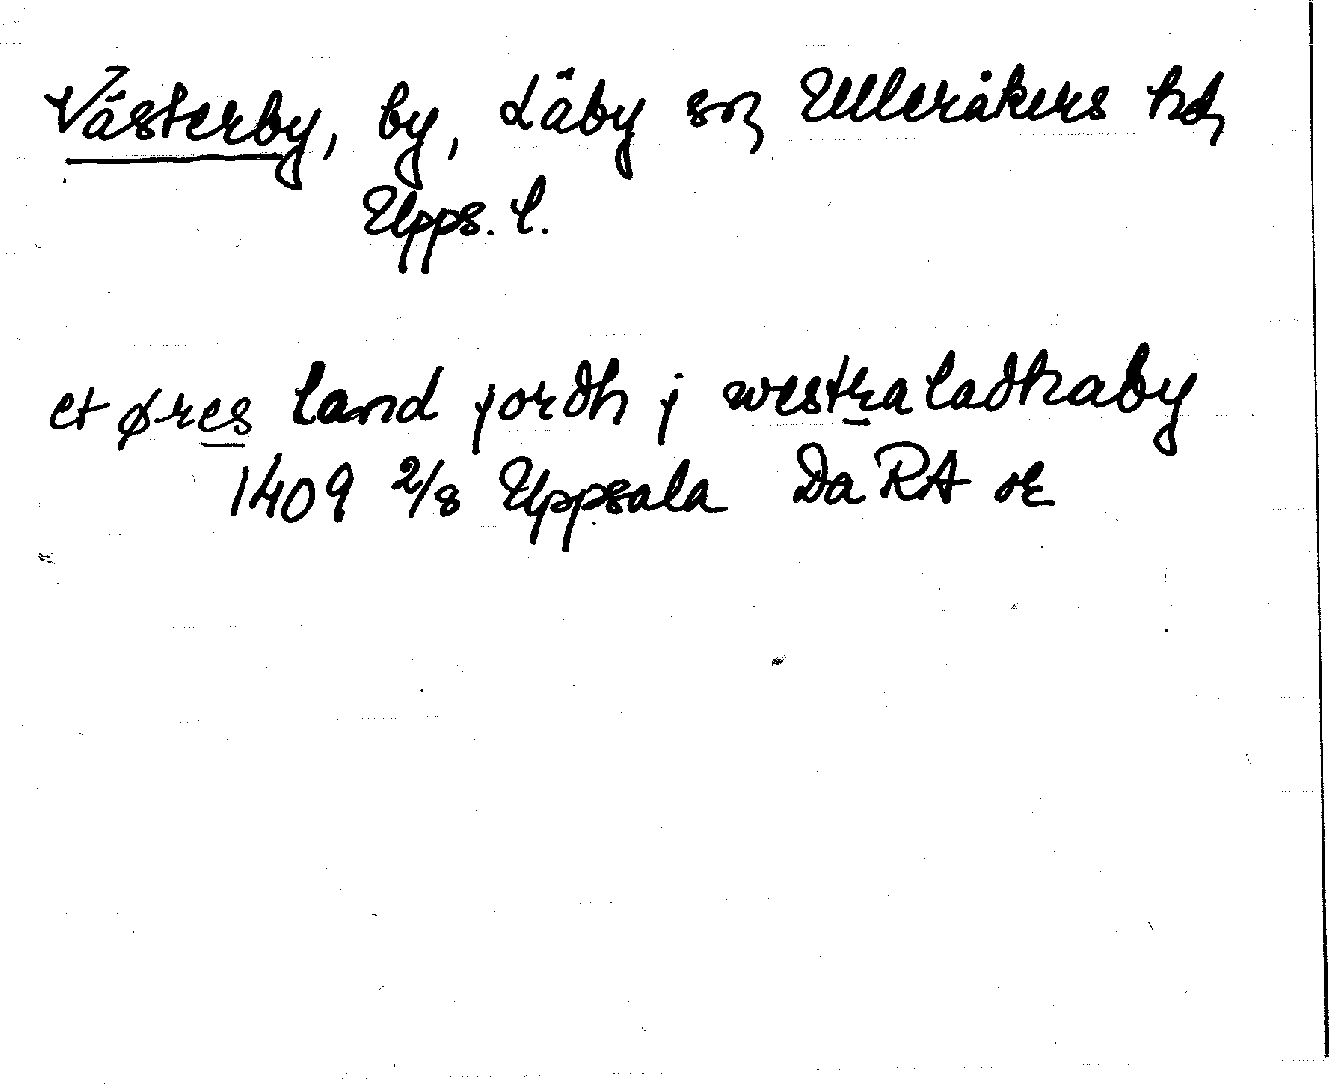 Västerby, by, Läby sn, Ulleråkers hd,
Upps. l.
et øres land jordh j westra ladhaby
1409 2/8 Uppsala Da RA or